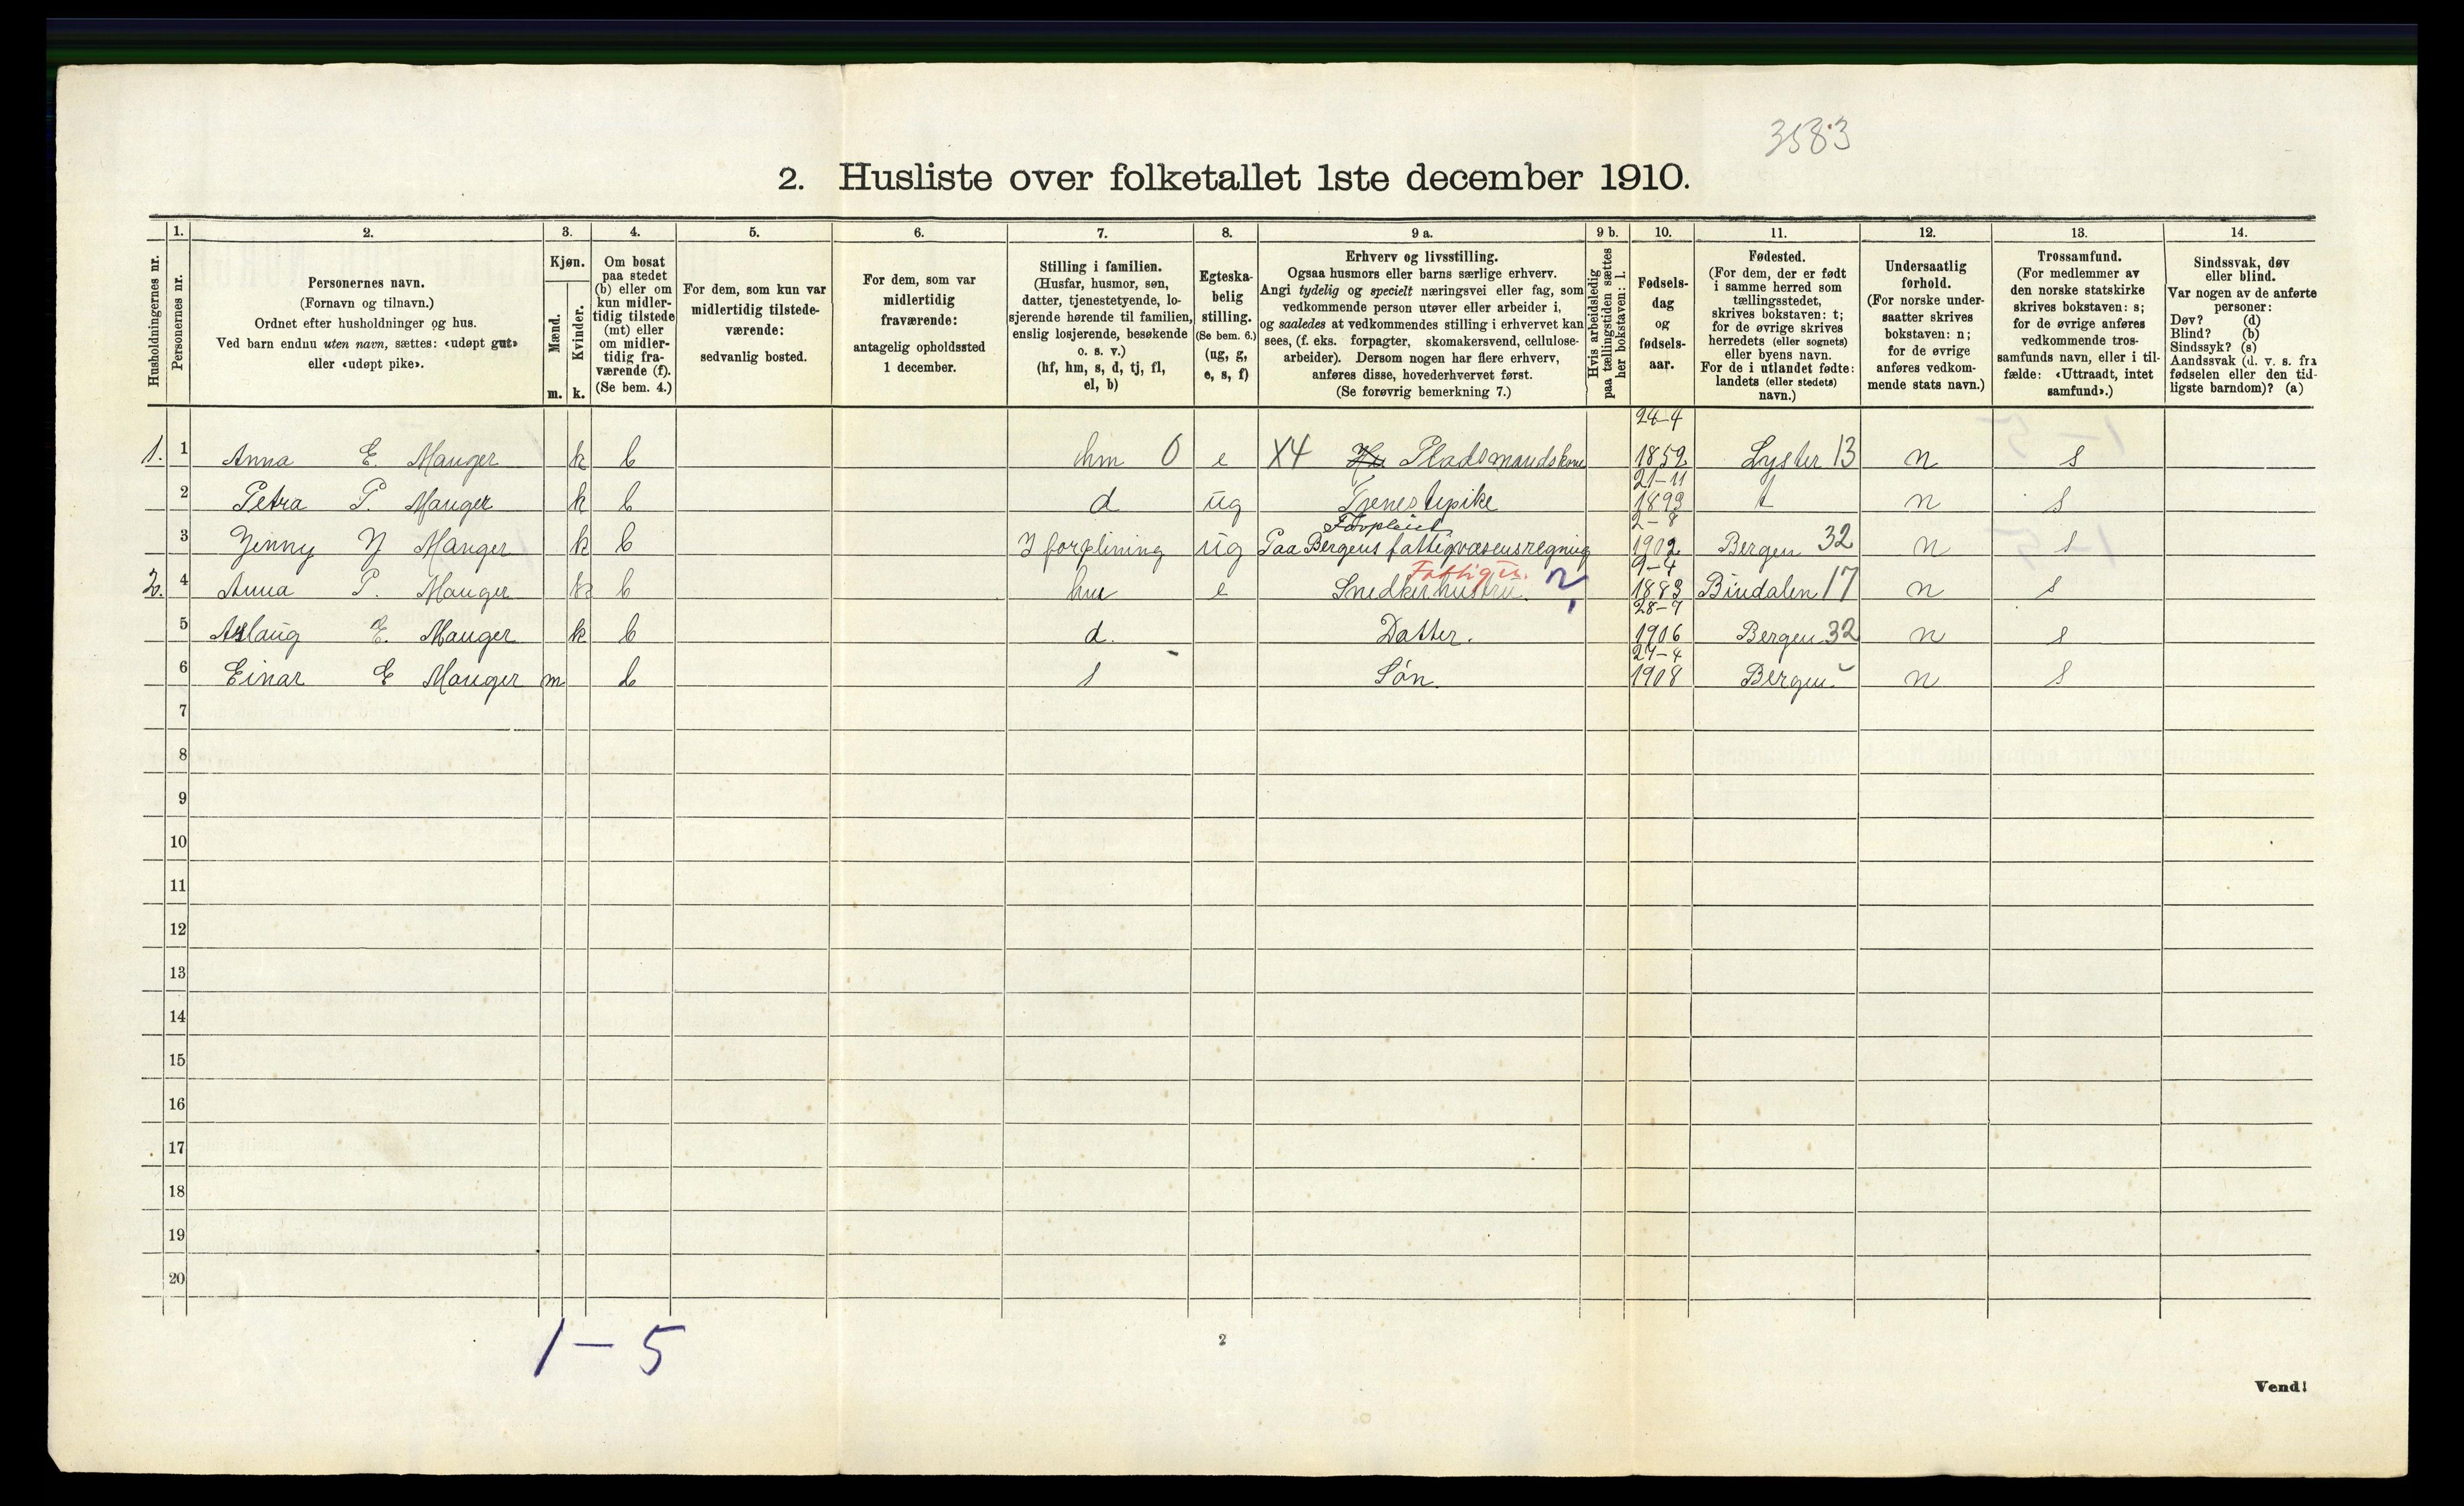 3583
2. Husliste over folketallet 1ste december 1910.
Husholdningernes nr.
1. Personernes nr.
2. Personernes navn.
(Fornavn og tilnavn.)
Ordnet efter husholdninger og hus.
Ved barn endnu uten navn, sættes: «udøpt gut»
eller «udøpt pike».
3. Kjøn.
Mænd. m.
Kvinder. k.
4. Om bosat
paa stedet
(b) eller om
kun midler-
tidig tilstede
(mt) eller
om midler-
tidig fra-
værende (f).
(Se bem. 4.)
5. For dem, som kun var
midlertidig tilstede-
værende:
sedvanlig bosted.
6. For dem, som var
midlertidig
fraværende:
antagelig opholdssted
1 december.
7. Stilling i familien.
(Husfar, husmor, søn,
datter, tjenestetyende, lo-
sjerende hørende til familien,
enslig losjerende, besøkende
o. s. v.)
(hf, hm, s, d, tj, fl,
el, b)
8. Egteska-
belig
stilling.
(Se bem. 6.)
(ug, g,
e, s, f)
9 a. Erhverv og livsstilling.
Ogsaa husmors eller barns særlige erhverv.
Angi tydelig og specielt næringsvei eller fag, som
vedkommende person utøver eller arbeider i,
og saaledes at vedkommendes stilling i erhvervet kan
sees, (f. eks. forpagter, skomakersvend, cellulose-
arbeider). Dersom nogen har flere erhverv,
anføres disse, hovederhvervet først.
(Se forøvrig bemerkning 7.)
9 b. Hvis arbeidsledig
paa tællingstiden sættes
her bokstaven: l.
10. Fødsels-
dag
og
fødsels-
aar.
11. Fødested.
(For dem, der er født
i samme herred som
tællingsstedet,
skrives bokstaven: t;
for de øvrige skrives
herredets (eller sognets)
eller byens navn.
For de i utlandet fødte:
landets (eller stedets)
navn.)
12. Undersaatlig
forhold.
(For norske under-
saatter skrives
bokstaven: n;
for de øvrige
anføres vedkom-
mende stats navn.)
13. Trossamfund.
(For medlemmer av
den norske statskirke
skrives bokstaven: s;
for de øvrige anføres
vedkommende tros-
samfunds navn, eller i til-
fælde: «Uttraadt, intet
samfund».)
14. Sindssvak, døv
eller blind.
Var nogen av de anførte
personer:
Døv? (d)
Blind? (b)
Sindssyk? (s)
Aandssvak (d. v. s. fra
fødselen eller den tid-
ligste barndom)? (a)
1. 1 Anna E. Manger k b hm 0 e X4 Pladsmandskone 24-4 1852 Lyster 13 n s
2 Petra P. Manger k b d ug Tjenestepike 21-11 1893 t n s
3 Jenny J Manger k b I forpleining ug Forpleiet Paa Bergens fattigvæsensregning 2-8 1902 Bergen 32 n s
2. 4 Anna P. Manger k b hm e Snedkerhustru. 9-4 1883 17 n s
5 Aslaug E. Manger k b d. Datter. 28-7 1906 Bergen 32 n s
6 Einar E Manger m b s Søn. 27-4 1908 Bergen n s
7
8
9
10
11
12
13
14
15
16
17
18
19
20
1-5
2
Vend!